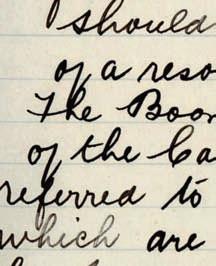 should
of a reso
The Boo
of the Ca
referred to
which are